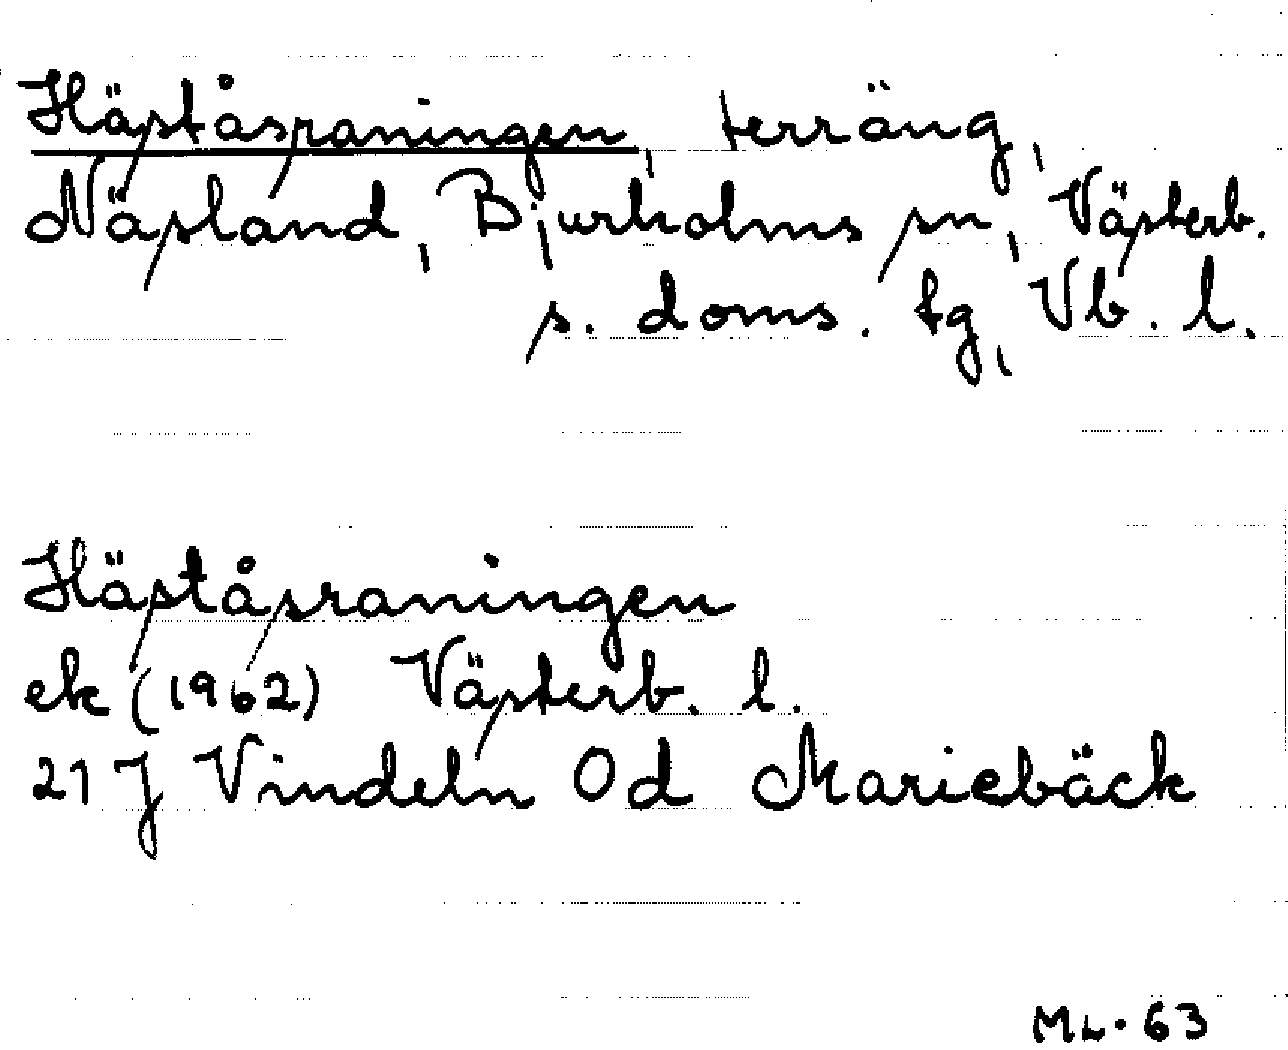 Häståsraningen, terräng,
Näsland, Bjurholms sn, Västerb.
s. doms. tg, Vb. l.
Häståsraningen
ek (1962) Västerb. l.
21 J Vindeln 0d Mariebäck
ML. 63